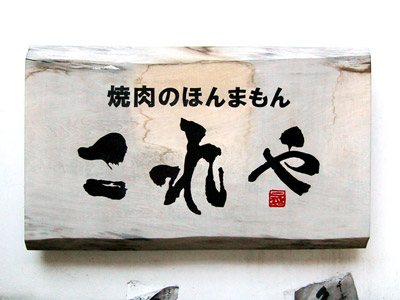 焼肉のほんまもん
これや